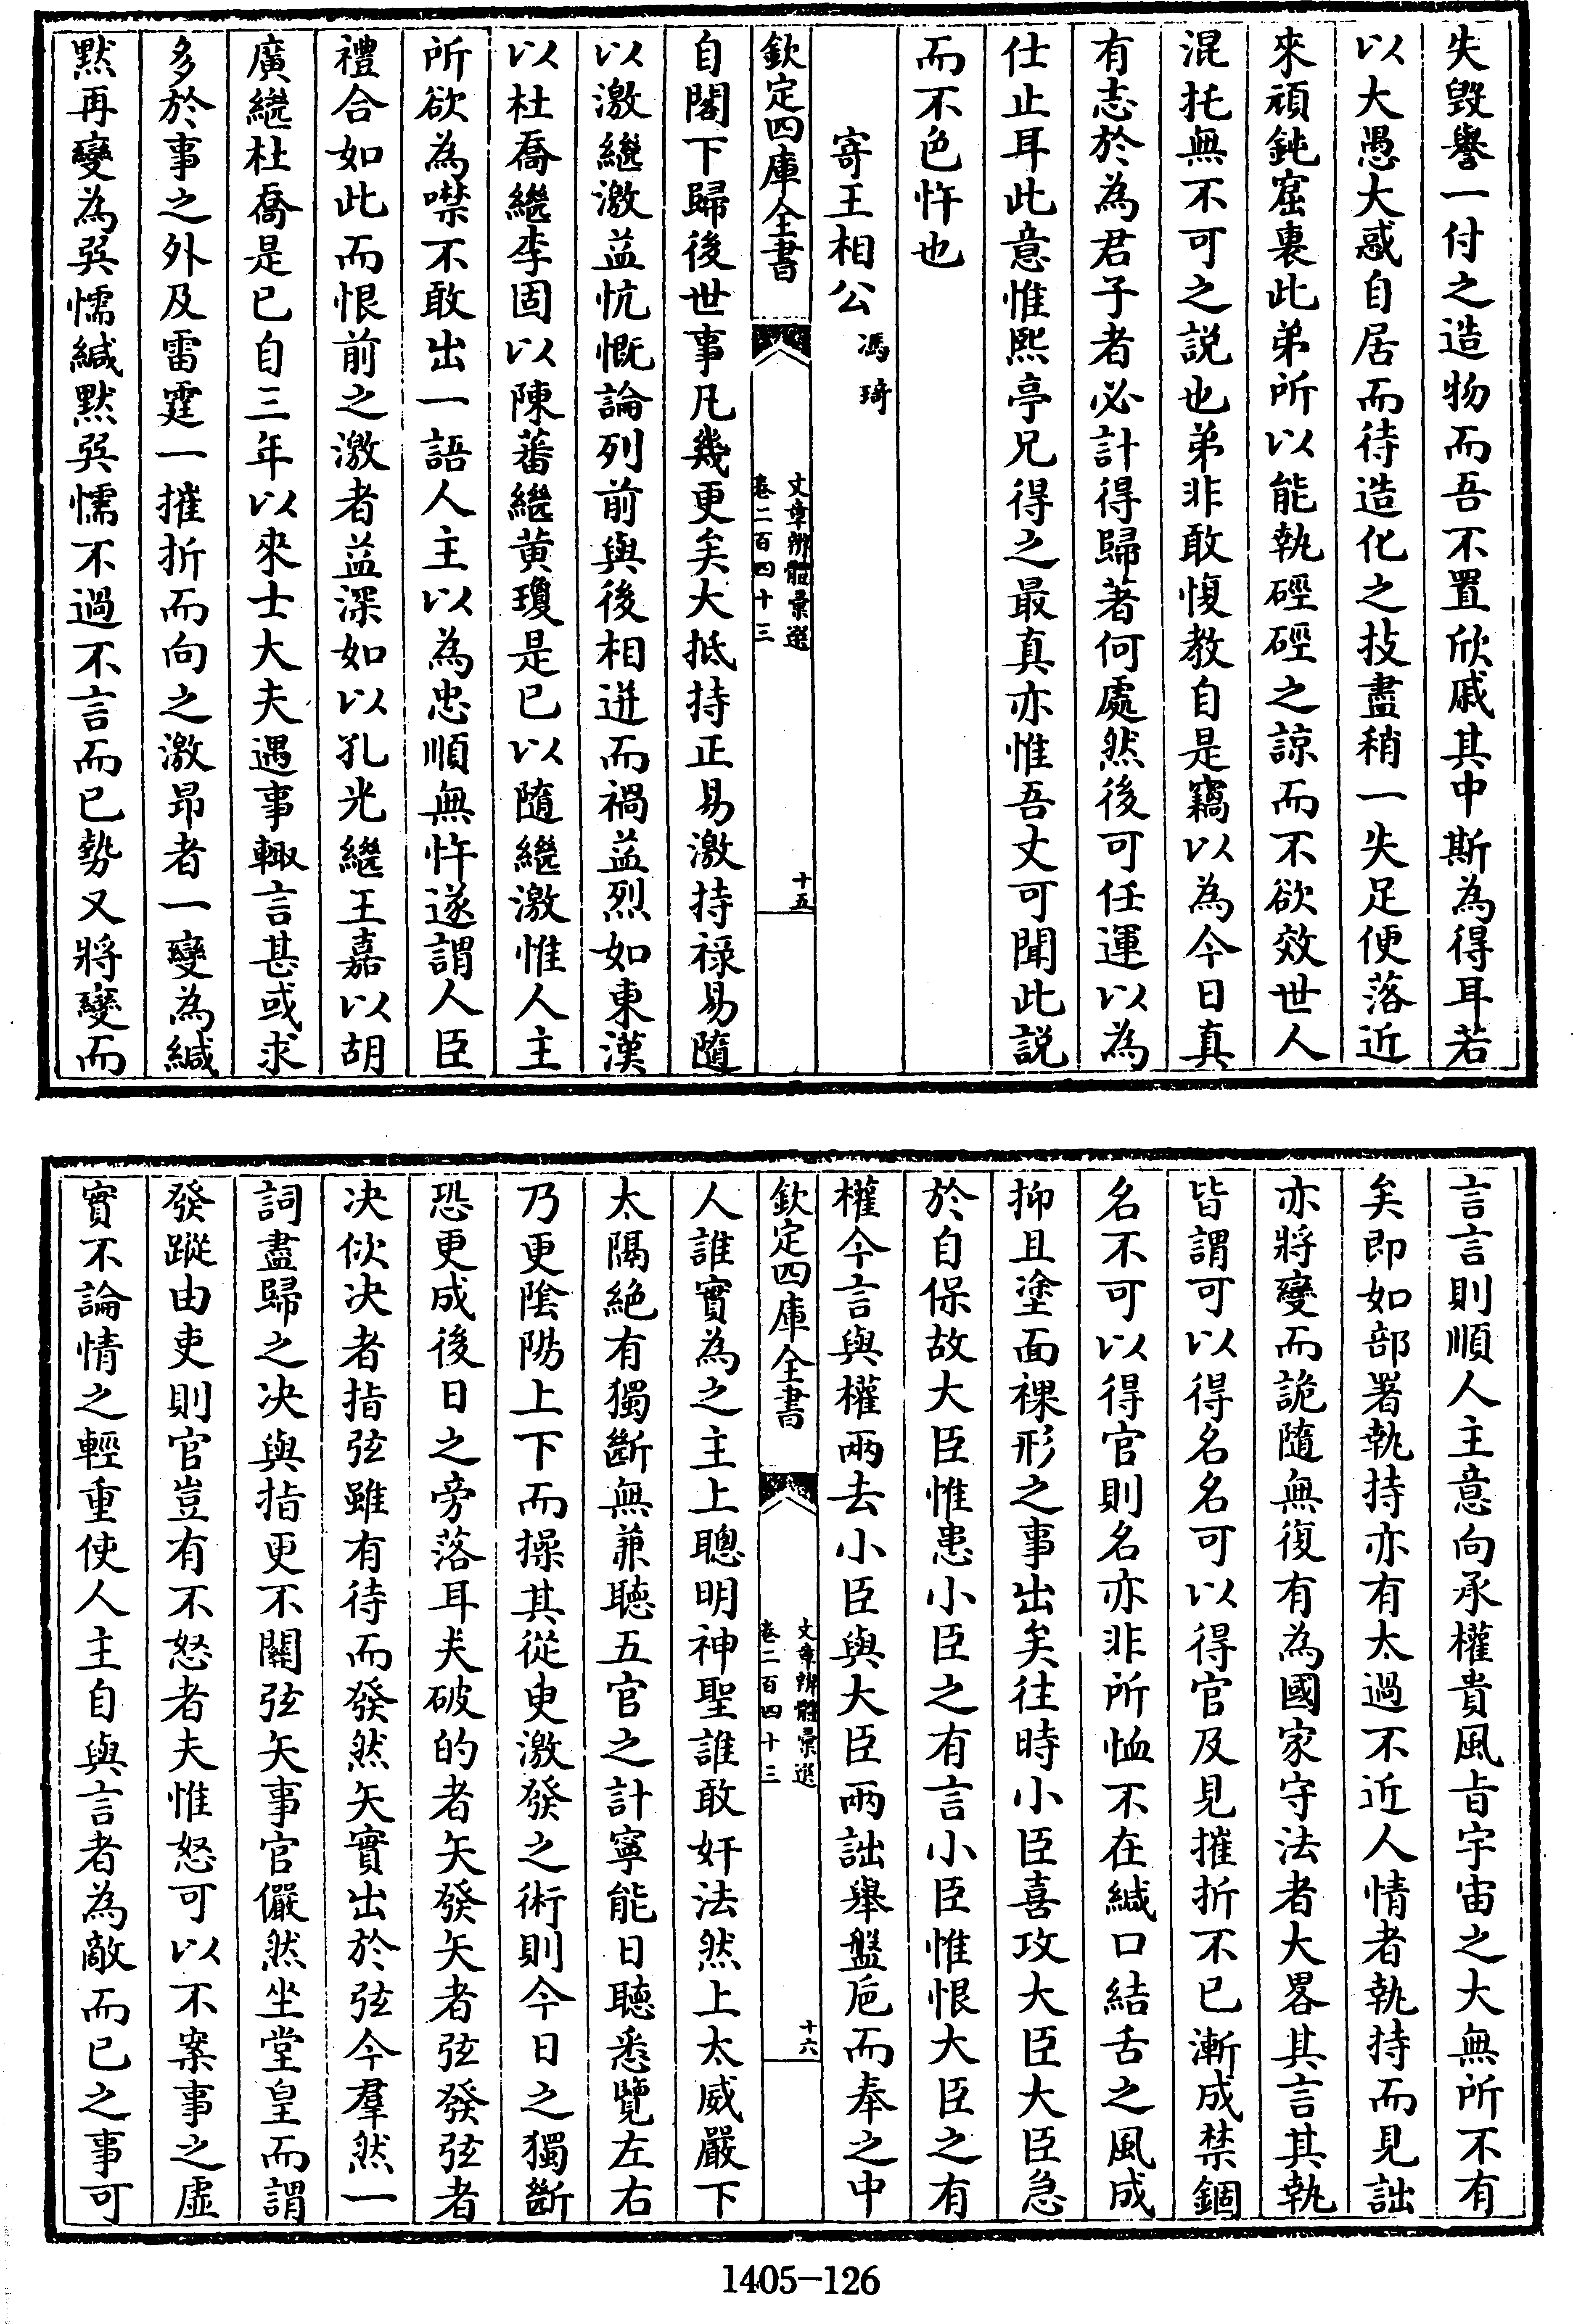 失毀譽一付之造物而吾不置欣戚其中斯為得耳若
以大愚大惑自居而待造化之技盡稍一失足便落近
來頑鈍窟裏此弟所以能執硜硜之諒而不欲效世人
混托無不可之説也弟非敢愎教自是竊以為今日真
有志於為君子者必計得歸著何處然後可任運以為
仕止耳此意惟熙亭兄得之最真亦惟吾丈可聞此説
而不色忤也
寄王相公 馮琦
欽定四庫全書 文章辨體彙選 卷二百四十三 十五
自閣下歸後世事凡幾更矣大抵持正易激持禄易隨
以激繼激益忼慨論列前與後相迸而禍益烈如東漢
以杜喬繼李固以陳蕃繼黄瓊是已以隨繼激惟人主
所欲為噤不敢出一語人主以為忠順無忤遂謂人臣
禮合如此而恨前之激者益深如以孔光繼王嘉以胡
廣繼杜喬是已自三年以來士大夫遇事輙言甚或求
多於事之外及雷霆一摧折而向之激昂者一變為緘
黙再變為㒲懦緘黙㒲懦不過不言而已勢又將變而
言言則順人主意向承權貴風㫖宇宙之大無所不有
矣即如部署執持亦有太過不近人情者執持而見詘
亦將變而詭隨無復有為國家守法者大畧其言其執
皆謂可以得名名可以得官及見摧折不已漸成禁錮
名不可以得官則名亦非所恤不在緘口結舌之風成
抑且塗面裸形之事出矣往時小臣喜攻大臣大臣急
於自保故大臣惟患小臣之有言小臣惟恨大臣之有
權今言與權兩去小臣與大臣兩詘舉盤巵而奉之中
欽定四庫全書 文章辨體彙選 卷二百四十三 十六
人誰實為之主上聰明神聖誰敢奸法然上太威嚴下
太隔絶有獨斷無兼聽五官之計寧能日聽悉覽左右
乃更隂陽上下而操其從臾激發之術則今日之獨斷
恐更成後日之旁落耳夫破的者矢發矢者弦發弦者
决佽决者指弦雖有待而發然矢實出於弦今羣然一
詞盡歸之决與指更不關弦矢事官儼然坐堂皇而謂
發蹤由吏則官豈有不怒者夫惟怒可以不案事之虛
實不論情之輕重使人主自與言者為敵而已之事可
1405-126